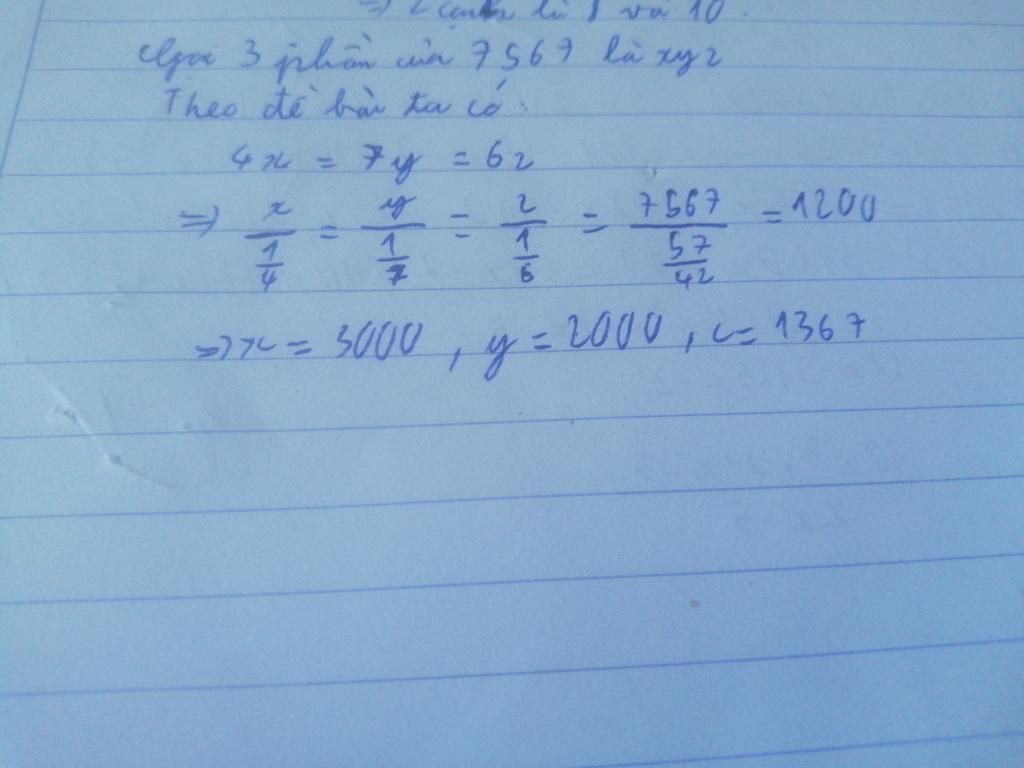 => 2 cạnh là 8 và 10.
Gọi 3 phần của 7567 là xyz
Theo đề bài ta có:
4x = 7y = 6z
=> x/(1/4) = y/(1/7) = z/(1/6) = 7567/(57/42) = 1200
=> x = 3000, y = 2000, z = 1367